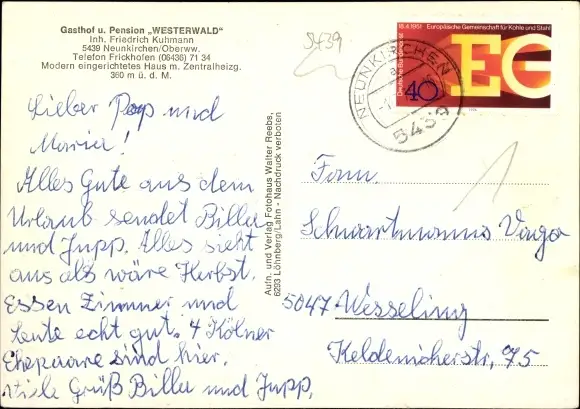 Gasthof u. Pension „WESTERWALD"
Inh. Friedrich Kuhmann
5439 Neunkirchen/Oberww.
Telefon Frickhofen (06436) 71 34
Modern eingerichtetes Haus m. Zentralheizg.
360 m ü. d. M.
Lieber Pap und
Maria!
Alles Gute aus dem
Urlaub sendet Billa
und Jupp. Alles sieht
aus als wäre Herbst.
Essen Zimmer und
Leute echt gut. 4 Kölner
Ehepaare sind hier.
Viele Grüß Billa und Jupp.
Aufn. und Verlag Fotohaus Walter Reebs,
6293 Löhnberg/Lahn - Nachdruck verboten
5439
NEUNKIRCHEN
5439
18.4.1951 Europäische Gemeinschaft für Kohle und Stahl
Deutsche Bundespost
40
EG
1
Fam.
Schwartmanns
5047 Wesseling
Keldenicherstr, 75